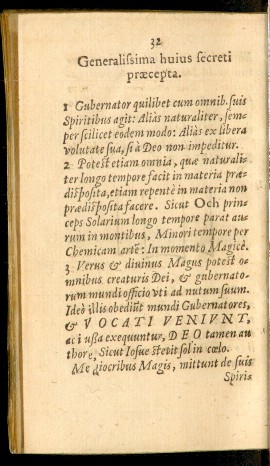 32
Generalissima huius secreti
præcepta.
1 Gubernator quilibet cum omnib. suis
Spiritibus agit: Aliàs naturaliter, sem-
per scilicet eodem modo: Aliàs ex libera
volutate sua, si à Deo non impeditur.
2 Potest etiam omnia, quæ naturali-
ter longo tempore facit in materia præ-
disposita, etiam repentè in materia non
prædisposita facere. Sicut Och prin-
ceps Solarium longo tempore parat au-
rum in montibus, Minori tempore per
Chemicam arté: In momento Magicè.
3 Verus & diuinus Magus potest o-
mnibus creaturis Dei, & gubernato-
rum mundi officio vti ad nutum suum.
Ideò illis obediūt mundi Gubernatores,
& VOCATI VENIVNT,
ac iussa exequuntur, DEO tamen au
thore, Sicut Iosue stetit sol in cœlo.
Mediocribus Magis, mittunt de suis
Spiris